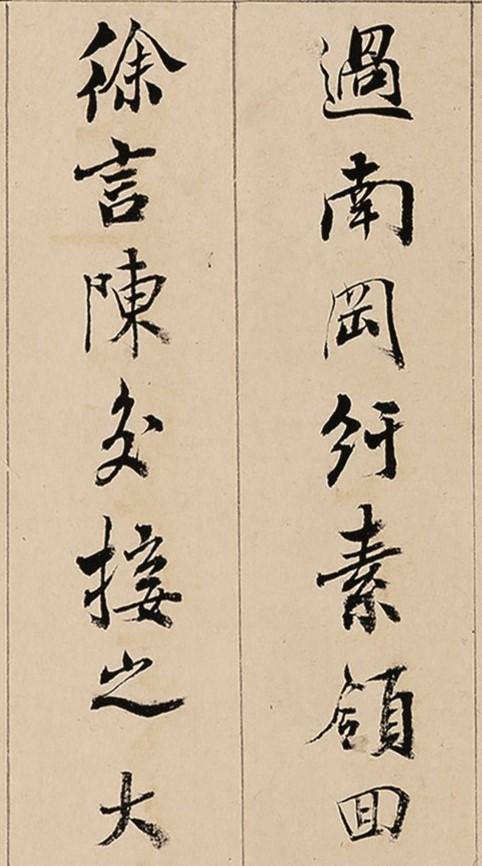 過南岡紆素領回
徐言陳交接之大